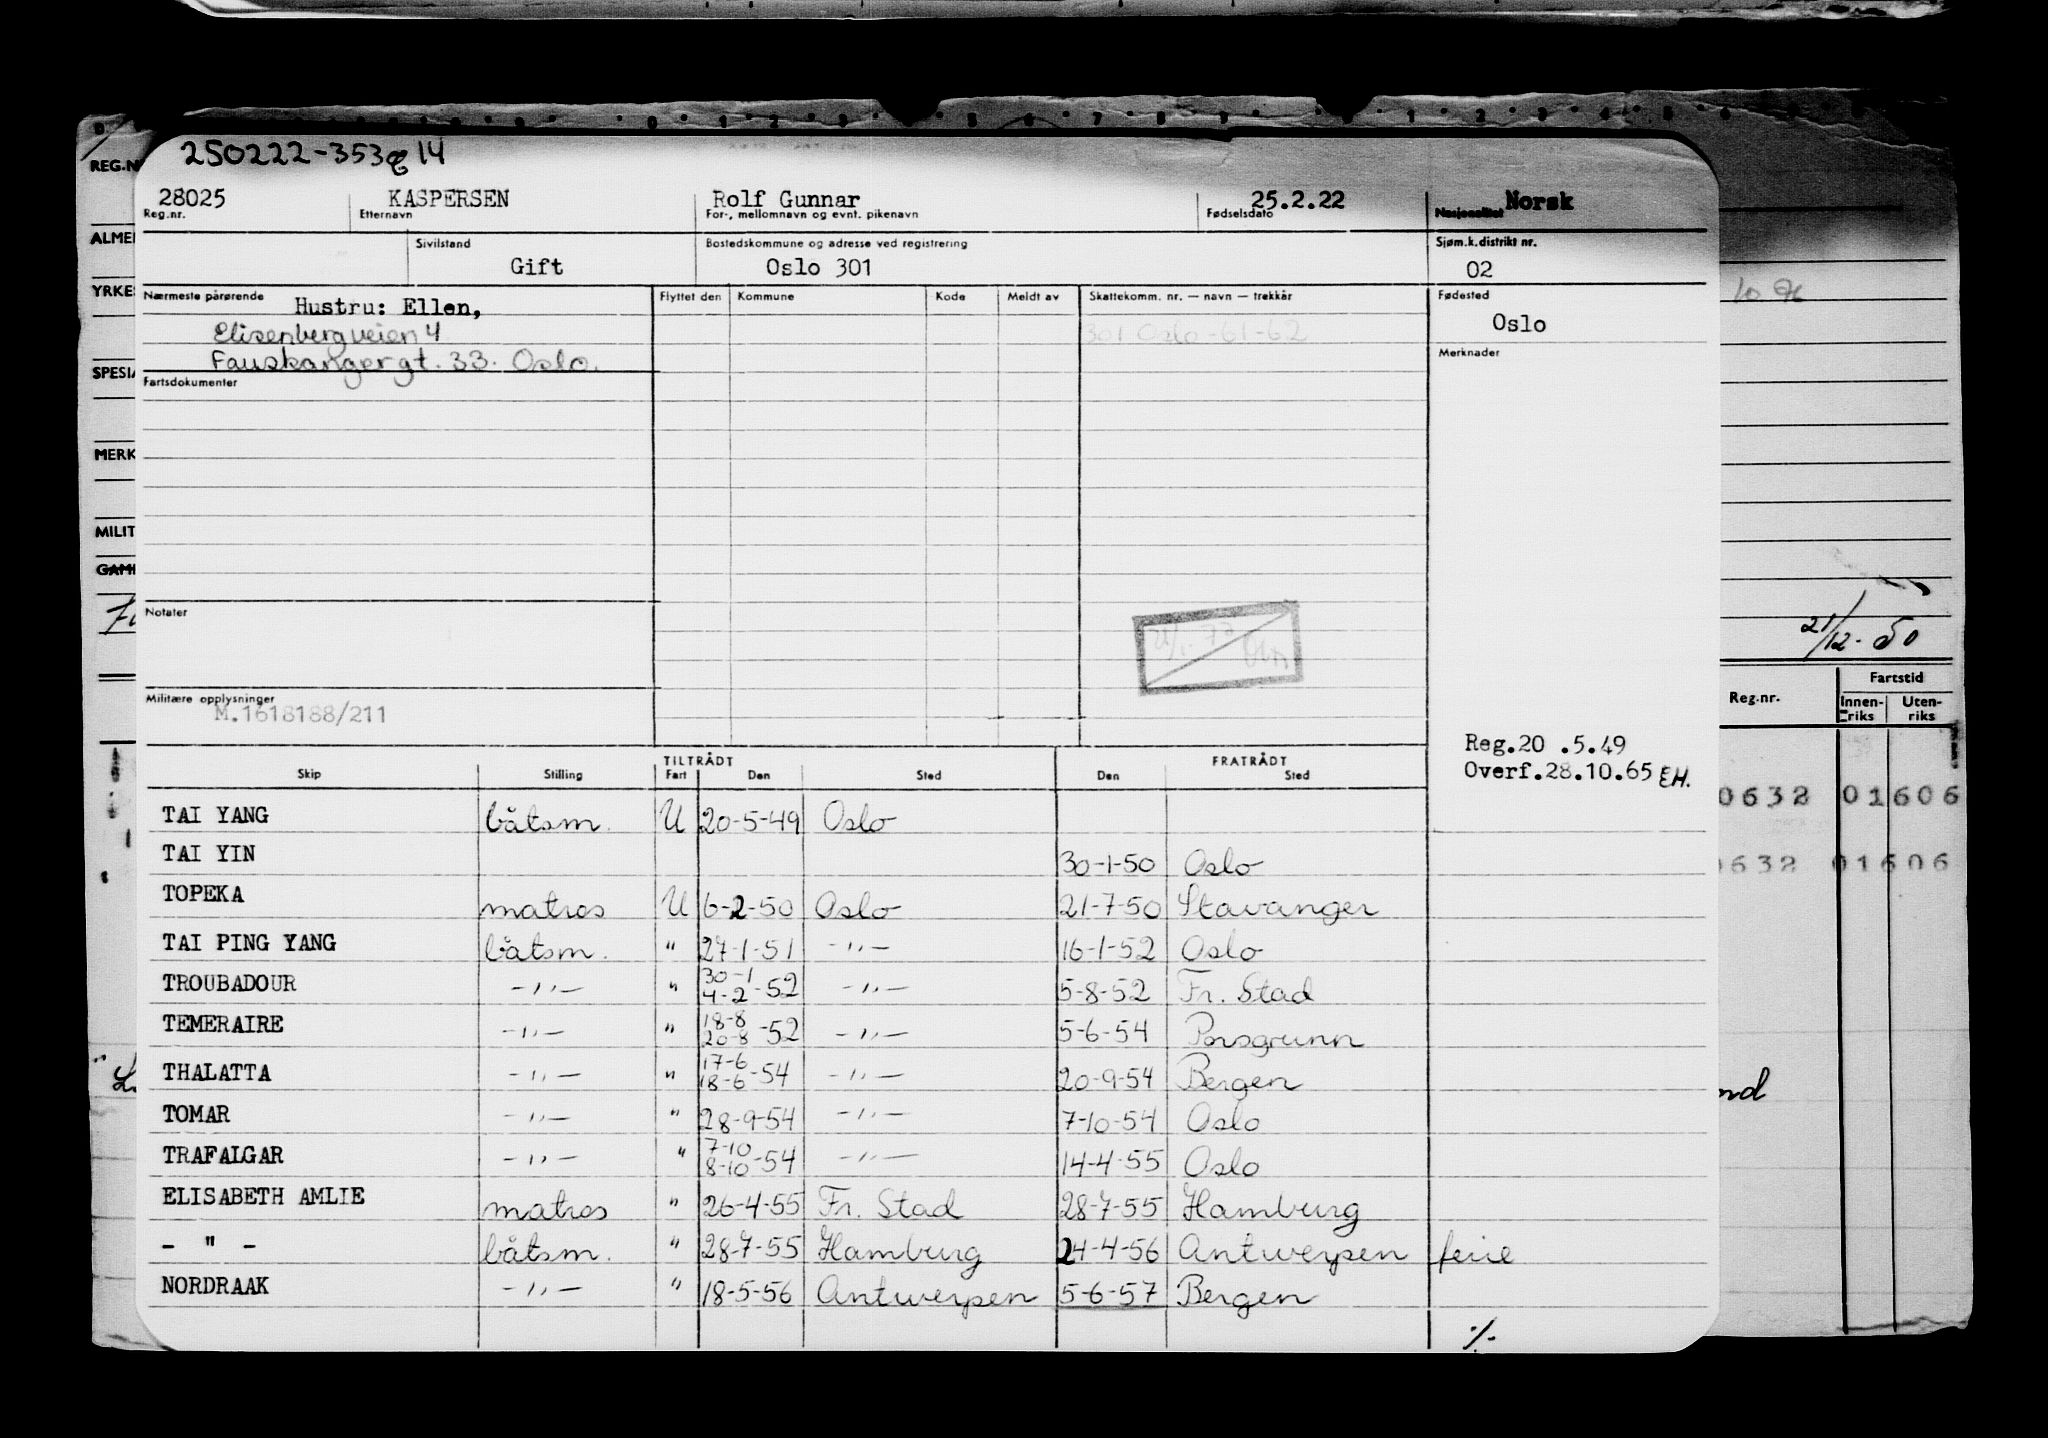 250222-353 14
28025 KASPERSEN Rolf Gunnar 25.2.22 Norsk
Reg.nr. Etternavn For-, mellomnavn og evnt. pikenavn Fødselsdato Nasjonalitet
Sivilstand Bostedskommune og adresse ved registrering Sjøm.k.distrikt nr.
Gift Oslo 301 02
Nærmeste pårørende Flyttet den Kommune Kode Meldt av Skattekomm. nr. — navn — trekkår Fødested
Hustru: Ellen,
Elisenbergveien 4 301 Oslo -61-62 Oslo
Fauskangergt. 33. Oslo. Merknader
Fartsdokumenter
Notater
Militære opplysninger
M.1618188/211
Reg.20 .5.49
Overf.28.10.65 EH.
TILTRÅDT FRATRÅDT
Skip Stilling Fart Den Sted Den Sted
TAI YANG båtsm. U 20-5-49 Oslo
TAI YIN 30-1-50 Oslo
TOPEKA matros U 6-2-50 Oslo 21-7-50 Stavanger
TAI PING YANG båtsm. " 27-1-51 -"- 16-1-52 Oslo
TROUBADOUR -"- " 30-1 4-2-52 -"- 5-8-52 Fr. Stad
TEMERAIRE -"- " 18-8 20-8-52 -"- 5-6-54 Porsgrunn
THALATTA -"- " 17-6 18-6-54 -"- 20-9-54 Bergen
TOMAR -"- " 28-9-54 -"- 7-10-54 Oslo
TRAFALGAR -"- " 7-10 8-10-54 -"- 14-4-55 Oslo
ELISABETH AMLIE matros " 26-4-55 Fr. Stad 28-7-55 Hamburg
- " - båtsm. " 28-7-55 Hamburg 24-4-56 Antwerpen ferie
NORDRAAK -"- " 18-5-56 Antwerpen 5-6-57 Bergen
./.
REG.N
ALME
YRKE
SPESI
MERK
MILIT
GAM
21/12-50
Fartstid
Reg.nr. Innenriks Utenriks
0632 01606
0632 01606